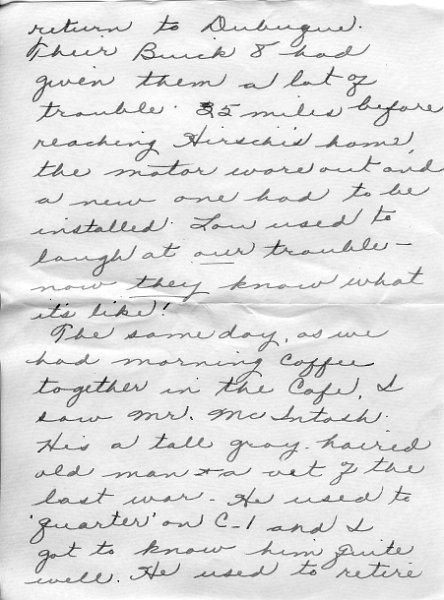 return to Dubuque.
Their Buick 8 had
given them a lot of
trouble. 35 miles before
reaching Hirschi's home,
the motor wore out and
a new one had to be
installed. Lou used to
laugh at our trouble –
now they know what
it's like!
The same day, as we
had morning coffee
together in the Cafe, I
saw Mr. McIntosh.
His a tall gray-haired
old man & a vet of the
last war. He used to
'quarter' on C-1 and I
got to know him quite
well. He used to retire